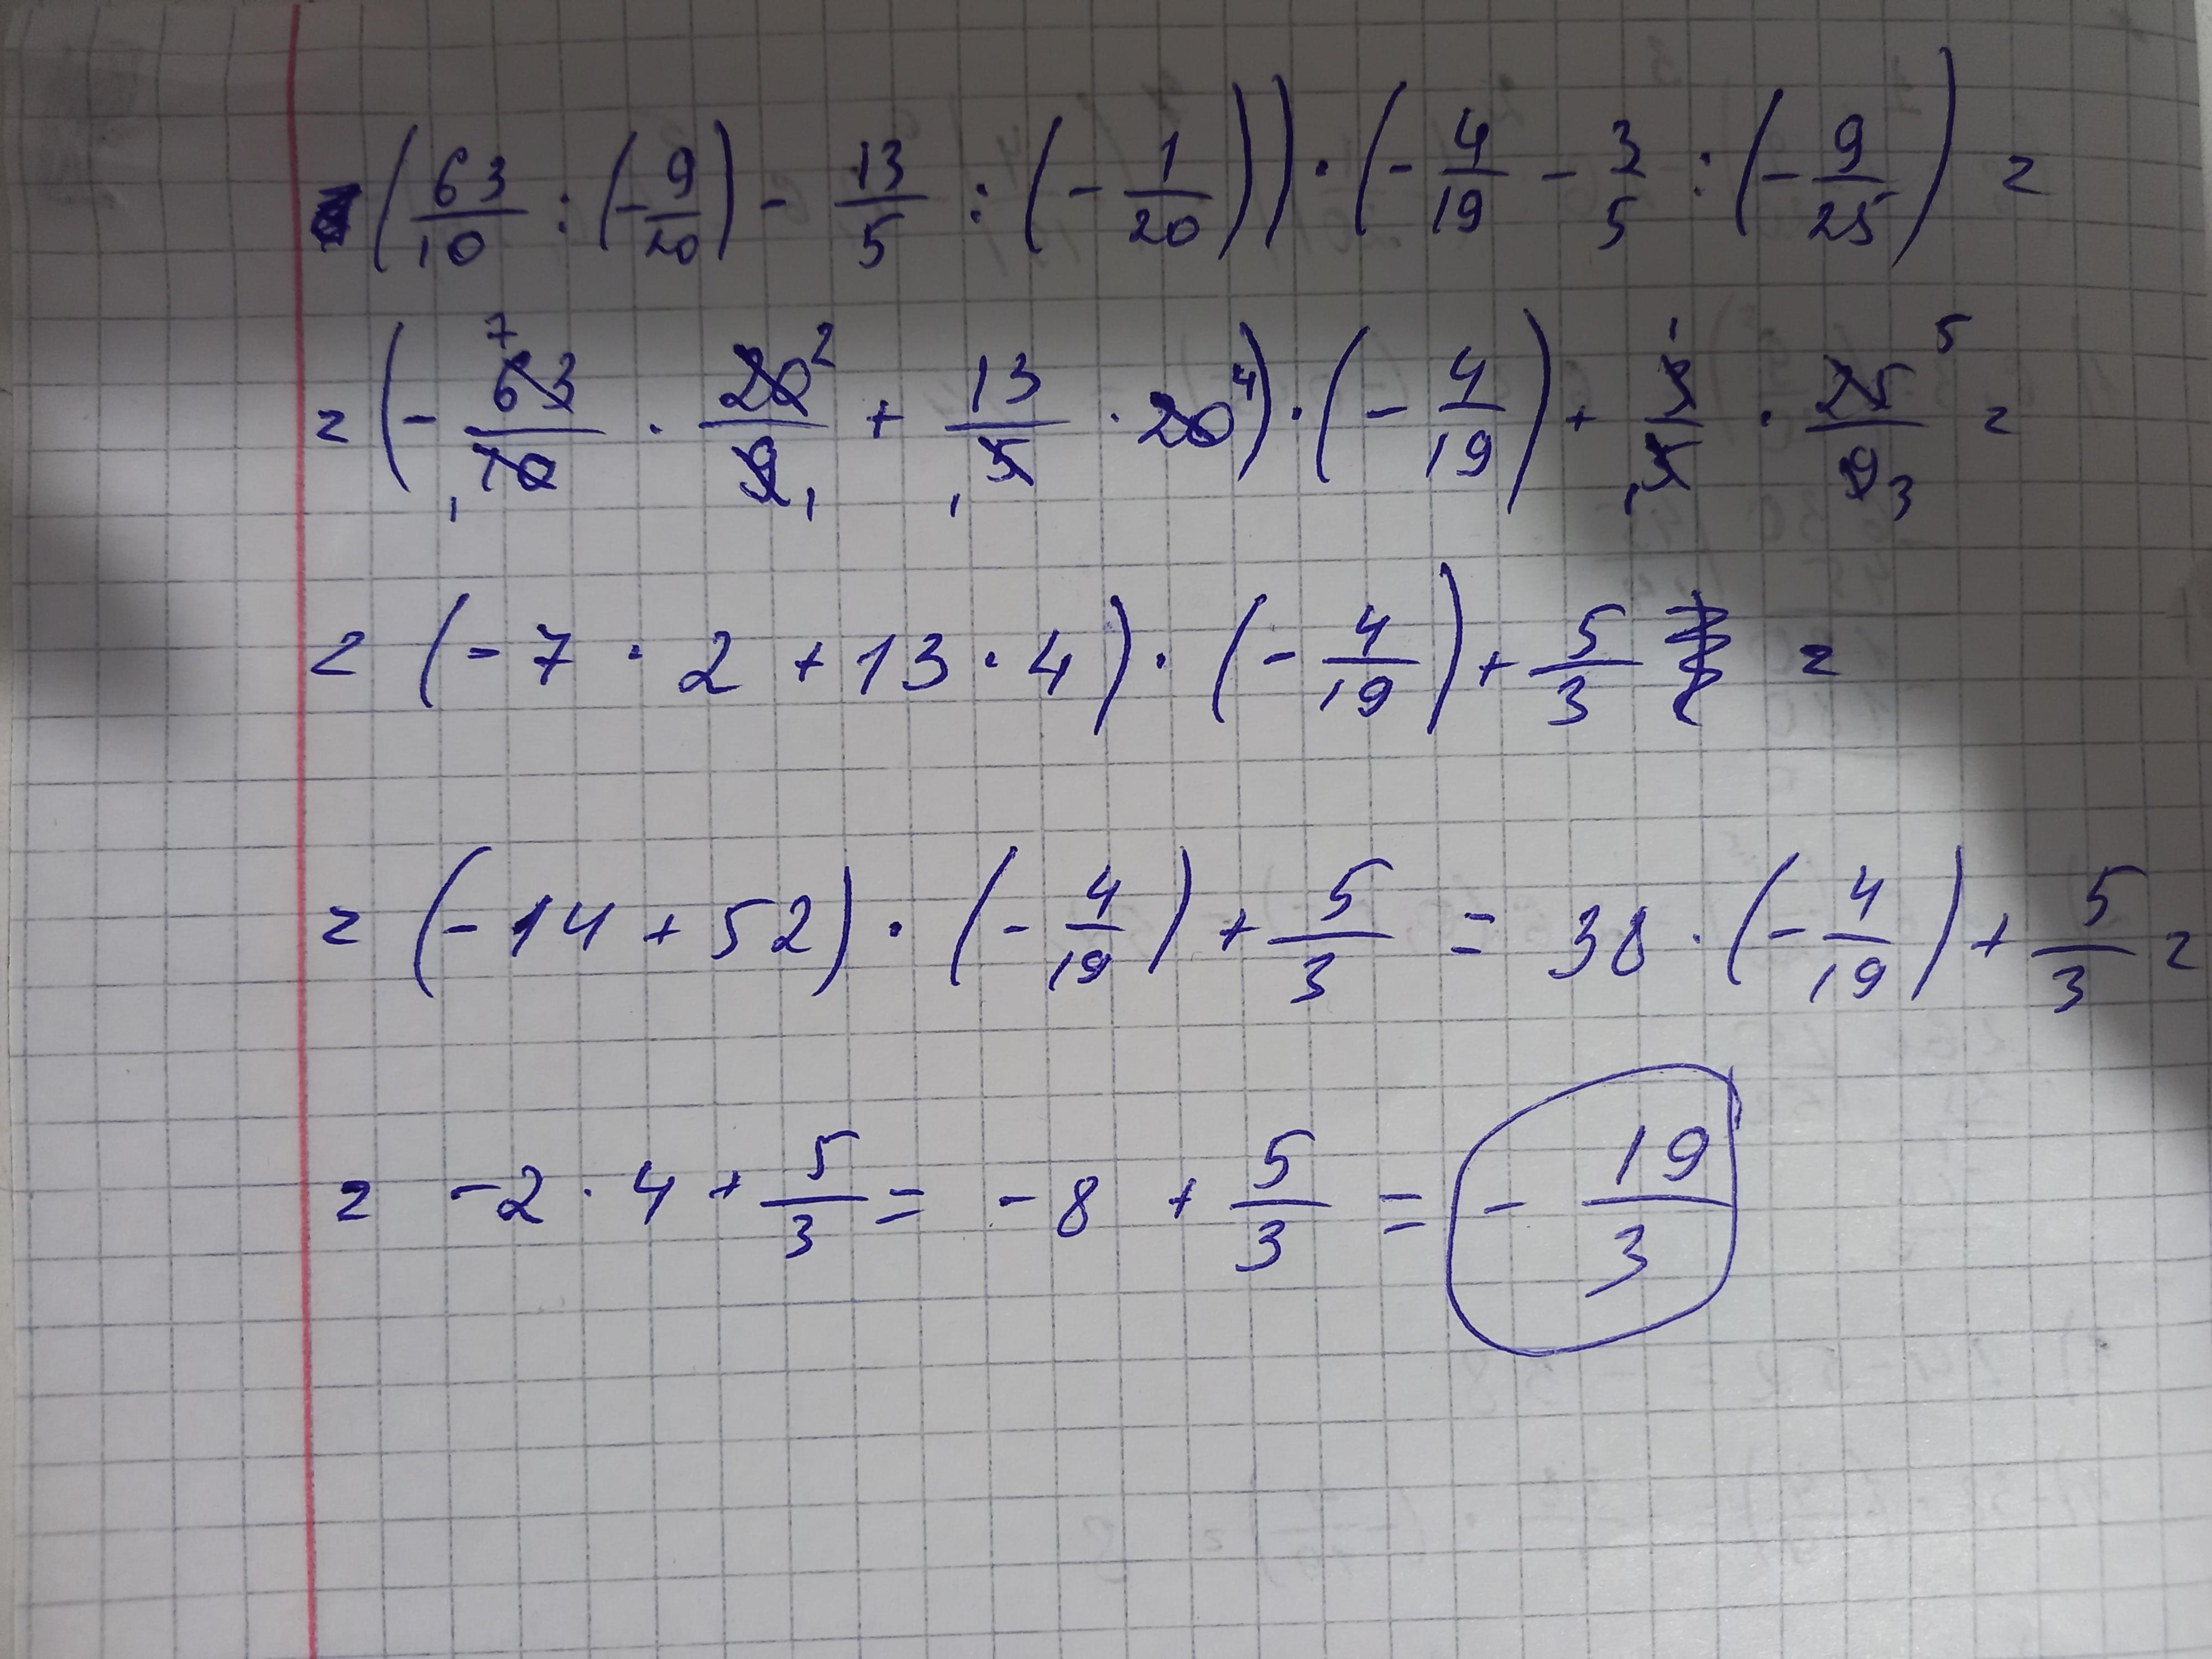 (63/10 : (-9/20) - 13/5 : (-1/20)) · (-4/19 - 3/5 : (-9/25) =
= (- 63/10 · 20/9 + 13/5 · 20) · (-4/19) + 3/5 · 25/9 =
= (-7 · 2 + 13 · 4) · (-4/19) + 5/3 =
= (-14 + 52) · (-4/19) + 5/3 = 38 · (-4/19) + 5/3 =
= -2 · 4 + 5/3 = -8 + 5/3 = -19/3